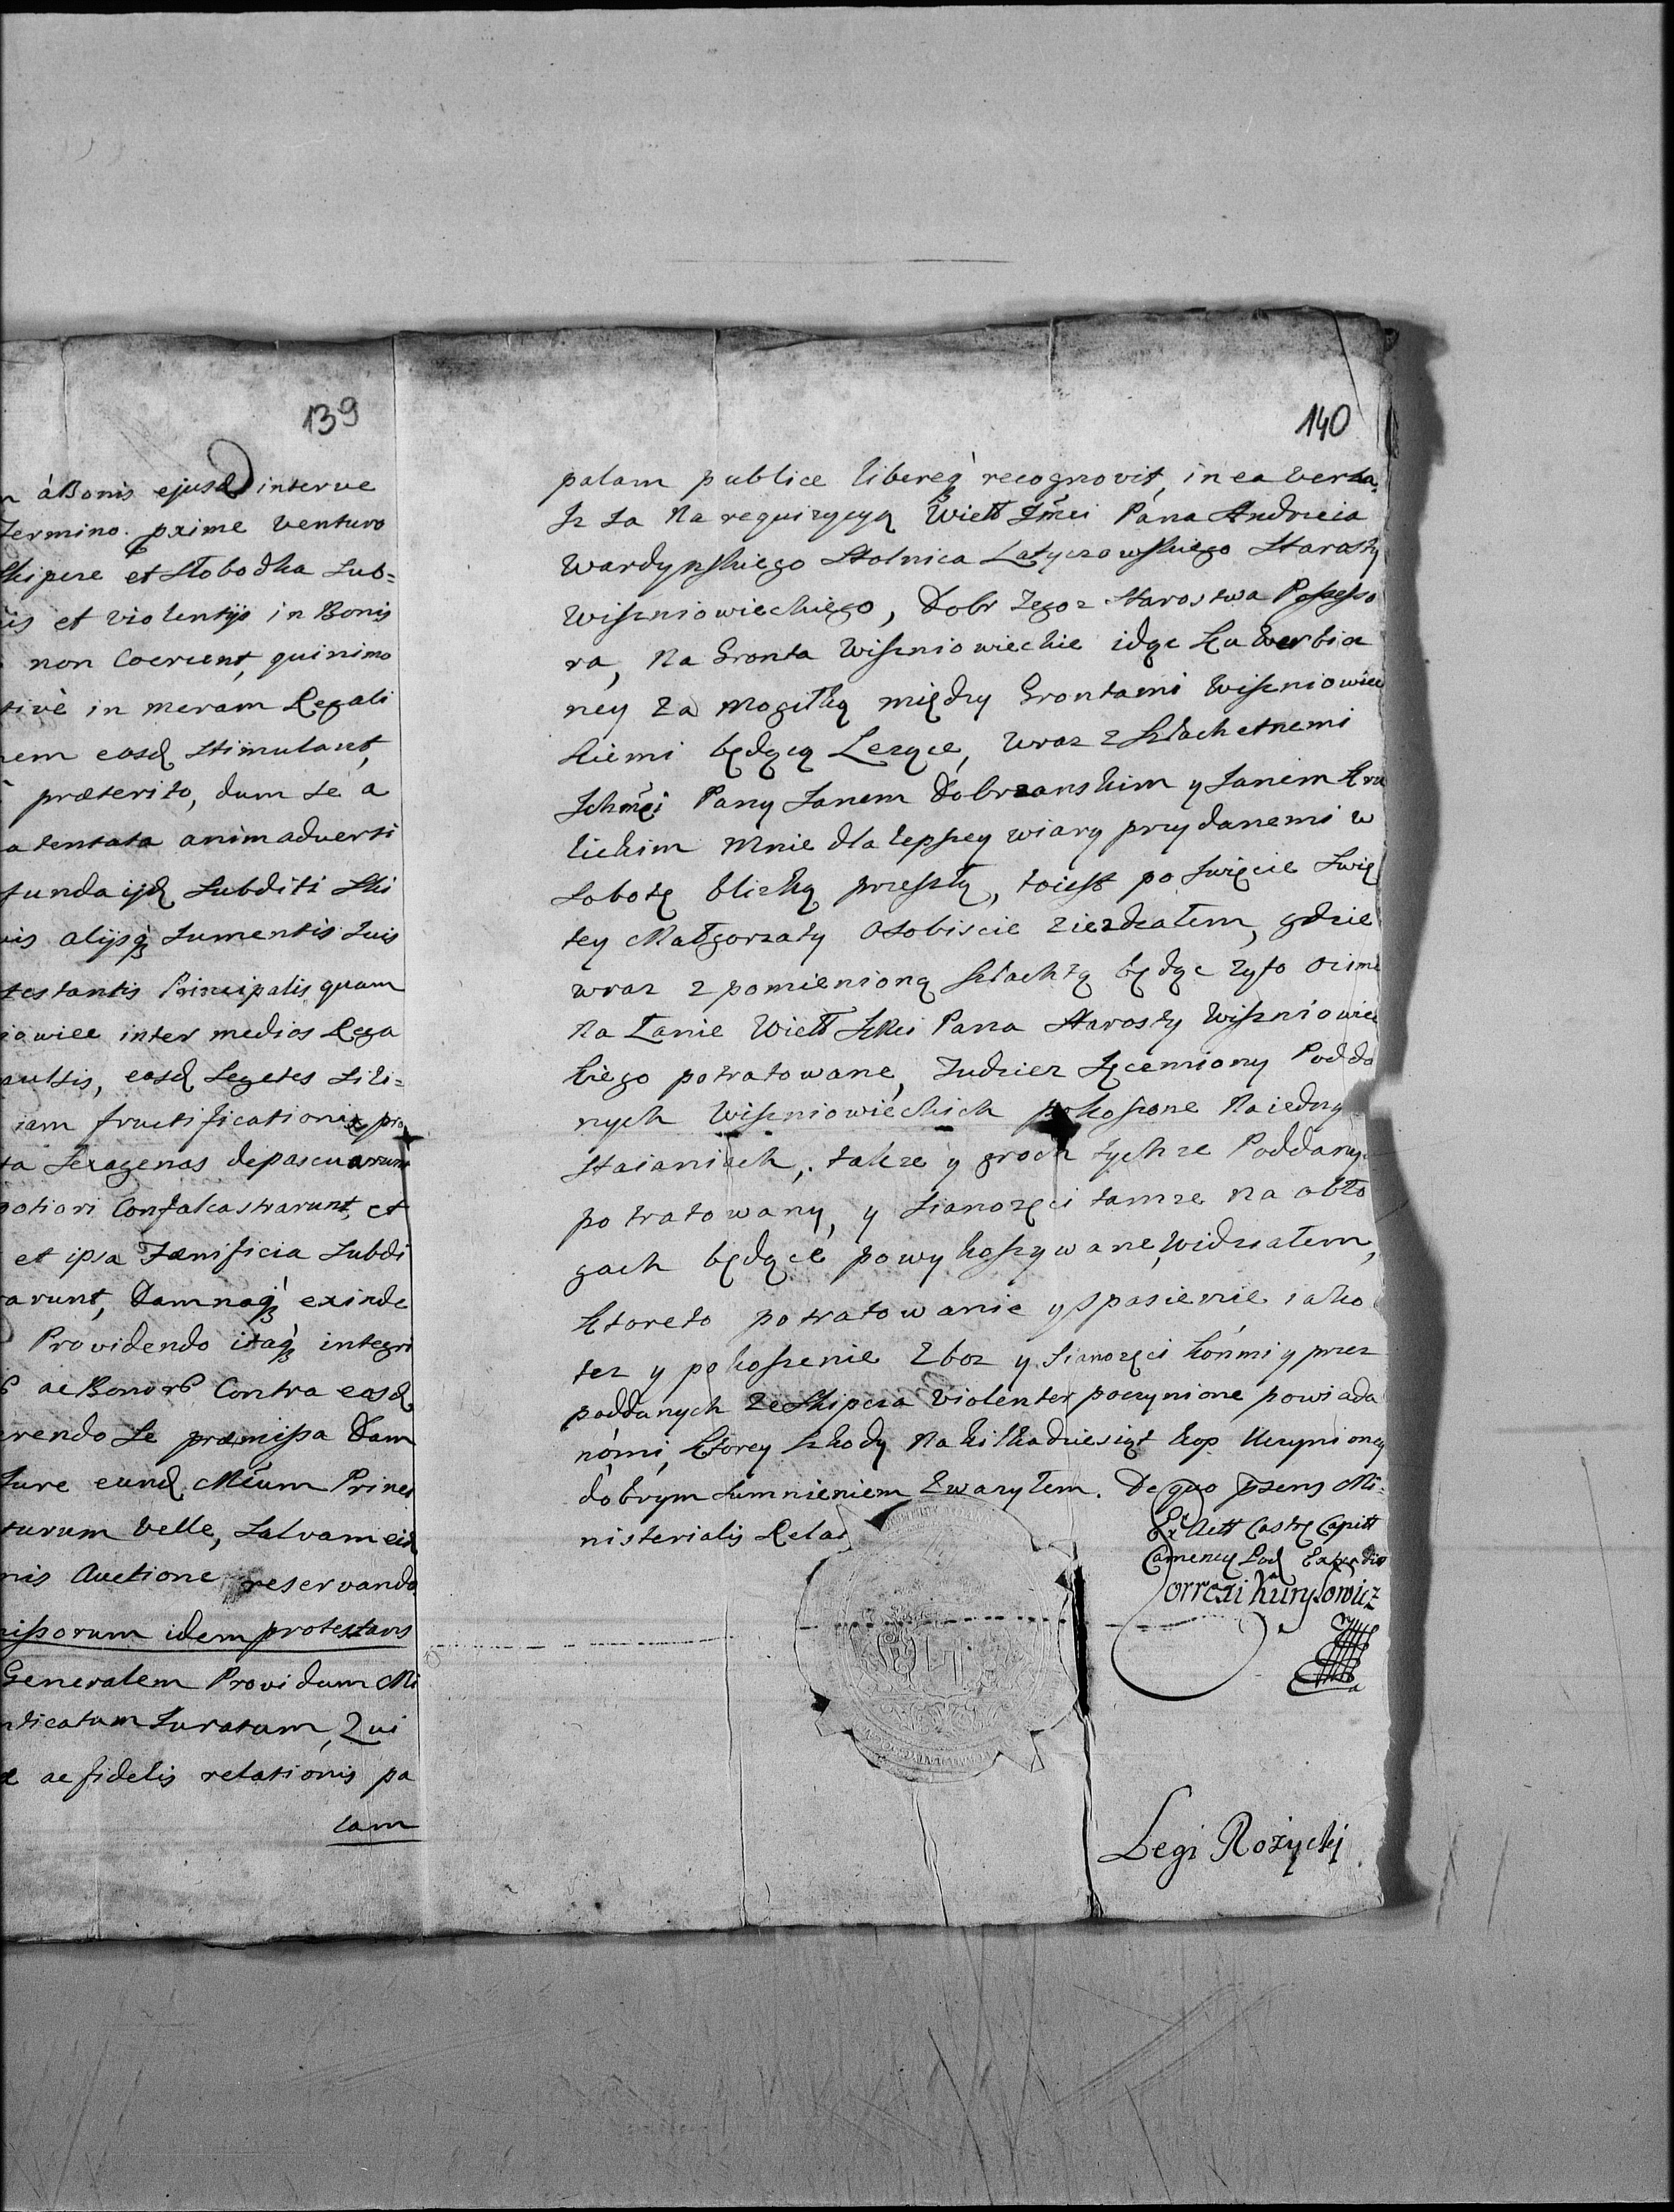 139
á Bonis ejusd interve
Termino. pxime venturo
Skipcze et Słobodka Sub=
et violentijs in Bonis
non Coercent, quinimo
in meram Regali
easd stimulant,
præterito, dum se a
tentata animadverti
funda ijd Subditi Ski
alijsq Jumentis Suis
testantis Principalis quam
inter medios Rega
easd Segetes Sili=
iam fructificationis pro
ta Sexagenas depascuarunt
potiori Confalcastrarunt, et
et ipsa Fænificia Subdi
arunt, Damnaq exinde
Providendo itaq integri
ac Bonor Contra easd
erendo Se præmissa Dam
Jure eund Mcum Princi
turum velle, Salvam eid
nis Auctione reservando
missorum idem protestans
Generalem Providum Mi
Juratum, Qui
ac fidelis relationis pa
lam
140
palam publice libereq recognovit, in ea verba.
Jz Ja Na requizycyą Wiell Jmci Pana Andrzeia
Wardynskiego Stolnica Latyczowskiego Starosty
Wiszniowieckiego, Dobr Tegoz Starostwa Possesso
ra, Na Gronta Wiszniowieckie idąc Ku Werbicz
ney za Mogiłką między Grontami Wiszniowiec
kiemi będącą Lezące, wraz z Szlachetnemi
Jchmci Pany Janem Dobrzanskim y Janem Kru
lickim Mnie dla lepszey wiary przydanemi w
Sobotę blizką przeszłą, toiest po Swięcie Swię
tey Małgorzaty Osobiscie ziezdzałem, gdzie
wraz z pomienioną Szlachtą będąc zyto ozime
Na Łanie Wiell Jmci Pana Starosty Wiszniowiec
kiego potratowane, Tudziez Jęcemiony Podda
nych Wiszniowieckich pokoszone Na iedny
Staianiach, takze y groch tychze Poddany
potratowany, y Sianozęci tamze na obło
gach będące powykoszywane, widziałem,
Ktoreto potratowanie y Spasienie iako
tez y pokoszenie Zboz y Sianozęci końmi y przez
poddanych ze Skipcza violenter poczynione powiada
nómi, Ktorey Szkody Na kilkadziesiąt kop Uczynioney
dobrym Sumnieniem Zwazyłem. De quo pzens Mi=
nisterialis Relao
Ex Actt Castr Capitt
Camenec Pod Extradit
Correxi Kurysowicz
Legi Rożycki